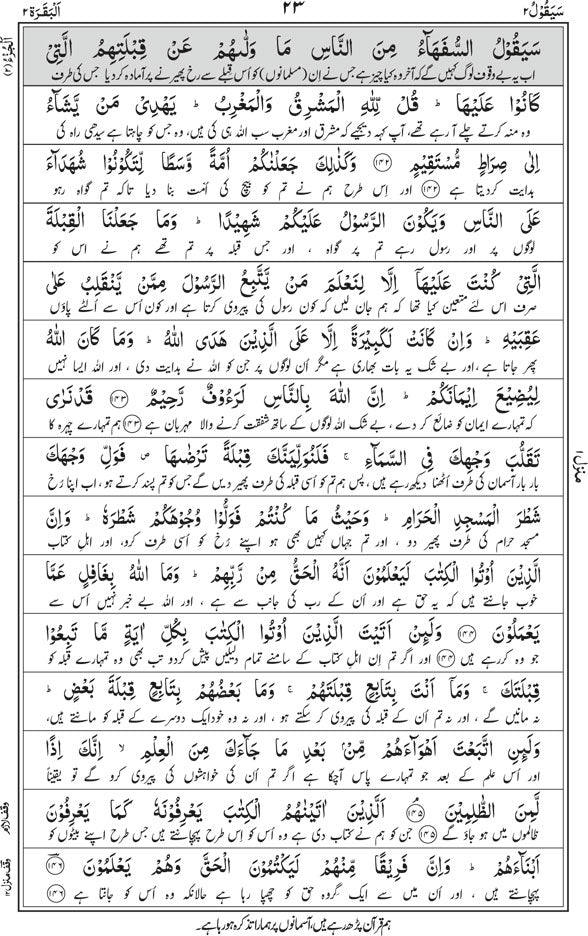 سَيَقُوْلُ ٢
٢٣
اَلْبَقَرَة ٢
اَلْجُزْءُ (٢)
سَيَقُوْلُ السُّفَهَآءُ مِنَ النَّاسِ مَا وَلّٰىهُمْ عَنْ قِبْلَتِهِمُ الَّتِيْ
اب یہ بے وقوف لوگ کہیں گے کہ آخر وہ کیا چیز ہے جس نے اِن (مسلمانوں) کو اُس قبلے سے رخ پھیرنے پر آمادہ کردیا جس کی طرف
كَانُوْا عَلَيْهَا ؕ قُلْ لِّلّٰهِ الْمَشْرِقُ وَالْمَغْرِبُ ؕ يَهْدِيْ مَنْ يَّشَآءُ
وہ منہ کرتے چلے آرہے تھے، آپ کہہ دیجیے کہ مشرق اور مغرب سب اللہ ہی کی ہیں، وہ جس کو چاہتا ہے سیدھی راہ کی
اِلٰى صِرَاطٍ مُّسْتَقِيْمٍ ﴿١٤٢﴾ وَكَذٰلِكَ جَعَلْنٰكُمْ اُمَّةً وَّسَطًا لِّتَكُوْنُوْا شُهَدَآءَ
ہدایت کردیتا ہے ﴿١٤٢﴾ اور اِس طرح ہم نے تم کو بیچ کی اُمت بنا دیا تاکہ تم گواہ رہو
عَلَى النَّاسِ وَيَكُوْنَ الرَّسُوْلُ عَلَيْكُمْ شَهِيْدًا ؕ وَمَا جَعَلْنَا الْقِبْلَةَ
لوگوں پر اور رسول رہے تم پر گواہ ، اور جس قبلہ پر تم تھے ہم نے اس کو
الَّتِيْ كُنْتَ عَلَيْهَآ اِلَّا لِنَعْلَمَ مَنْ يَّتَّبِعُ الرَّسُوْلَ مِمَّنْ يَّنْقَلِبُ عَلٰى
صرف اس لئے متعین کیا تھا کہ ہم جان لیں کہ کون رسول کی پیروی کرتا ہے اور کون اُس سے اُلٹے پاؤں
عَقِبَيْهِ ؕ وَاِنْ كَانَتْ لَكَبِيْرَةً اِلَّا عَلَى الَّذِيْنَ هَدَى اللّٰهُ ؕ وَمَا كَانَ اللّٰهُ
پھر جاتا ہے، اور بے شک یہ بات بھاری ہے مگر اُن لوگوں پر جن کو اللہ نے ہدایت دی ، اور اللہ ایسا نہیں
لِيُضِيْعَ اِيْمَانَكُمْ ؕ اِنَّ اللّٰهَ بِالنَّاسِ لَرَءُوْفٌ رَّحِيْمٌ ﴿١٤٣﴾ قَدْ نَرٰى
کہ تمہارے ایمان کو ضائع کر دے ، بے شک اللہ لوگوں کے ساتھ شفقت کرنے والا مہربان ہے ﴿١٤٣﴾ ہم تمہارے چہرہ کا
تَقَلُّبَ وَجْهِكَ فِي السَّمَآءِ ۚ فَلَنُوَلِّيَنَّكَ قِبْلَةً تَرْضٰىهَا ۪ فَوَلِّ وَجْهَكَ
بار بار آسمان کی طرف اُٹھنا دیکھ رہے ہیں، پس ہم تم کو اُسی قبلہ کی طرف پھیر دیں گے جس کو تم پسند کرتے ہو، اب اپنا رُخ
شَطْرَ الْمَسْجِدِ الْحَرَامِ ؕ وَحَيْثُ مَا كُنْتُمْ فَوَلُّوْا وُجُوْهَكُمْ شَطْرَهٗ ؕ وَاِنَّ
مسجد حرام کی طرف پھیر دو ، اور تم جہاں کہیں بھی ہو اپنے رُخ کو اُسی طرف کرو، اور اہلِ کتاب
الَّذِيْنَ اُوْتُوا الْكِتٰبَ لَيَعْلَمُوْنَ اَنَّهُ الْحَقُّ مِنْ رَّبِّهِمْ ؕ وَمَا اللّٰهُ بِغَافِلٍ عَمَّا
خوب جانتے ہیں کہ یہ حق ہے اور اُن کے رب کی جانب سے ہے ، اور اللہ بے خبر نہیں اُس سے
يَعْمَلُوْنَ ﴿١٤٤﴾ وَلَئِنْ اَتَيْتَ الَّذِيْنَ اُوْتُوا الْكِتٰبَ بِكُلِّ اٰيَةٍ مَّا تَبِعُوْا
جو وہ کررہے ہیں ﴿١٤٤﴾ اور اگر تم اِن اہلِ کتاب کے سامنے تمام دلیلیں پیش کردو تب بھی وہ تمہارے قبلہ کو
قِبْلَتَكَ ۚ وَمَآ اَنْتَ بِتَابِعٍ قِبْلَتَهُمْ ۚ وَمَا بَعْضُهُمْ بِتَابِعٍ قِبْلَةَ بَعْضٍ ؕ
نہ مانیں گے ، اور نہ تم اُن کے قبلہ کی پیروی کر سکتے ہو ، اور نہ وہ خود ایک دوسرے کے قبلہ کو مانتے ہیں،
وَلَئِنِ اتَّبَعْتَ اَهْوَآءَهُمْ مِّنْۢ بَعْدِ مَا جَآءَكَ مِنَ الْعِلْمِ ۙ اِنَّكَ اِذًا
اور اُس علم کے بعد جو تمہارے پاس آچکا ہے اگر تم اُن کی خواہشوں کی پیروی کرو گے تو یقیناً
لَّمِنَ الظّٰلِمِيْنَ ﴿١٤٥﴾ اَلَّذِيْنَ اٰتَيْنٰهُمُ الْكِتٰبَ يَعْرِفُوْنَهٗ كَمَا يَعْرِفُوْنَ
ظالموں میں ہو جاؤ گے ﴿١٤٥﴾ جن کو ہم نے کتاب دی ہے وہ اُس کو اِس طرح پہچانتے ہیں جس طرح اپنے بیٹوں کو
اَبْنَآءَهُمْ ؕ وَاِنَّ فَرِيْقًا مِّنْهُمْ لَيَكْتُمُوْنَ الْحَقَّ وَهُمْ يَعْلَمُوْنَ ﴿١٤٦﴾
پہچانتے ہیں ، اور اُن میں سے ایک گروہ حق کو چھپا رہا ہے حالانکہ وہ اُس کو جانتا ہے ﴿١٤٦﴾
منزل ١
وقف لازم
وقف منزل
ہم قرآن پڑھ رہے ہیں، آسمانوں پر ہمارا تذکرہ ہورہا ہے۔